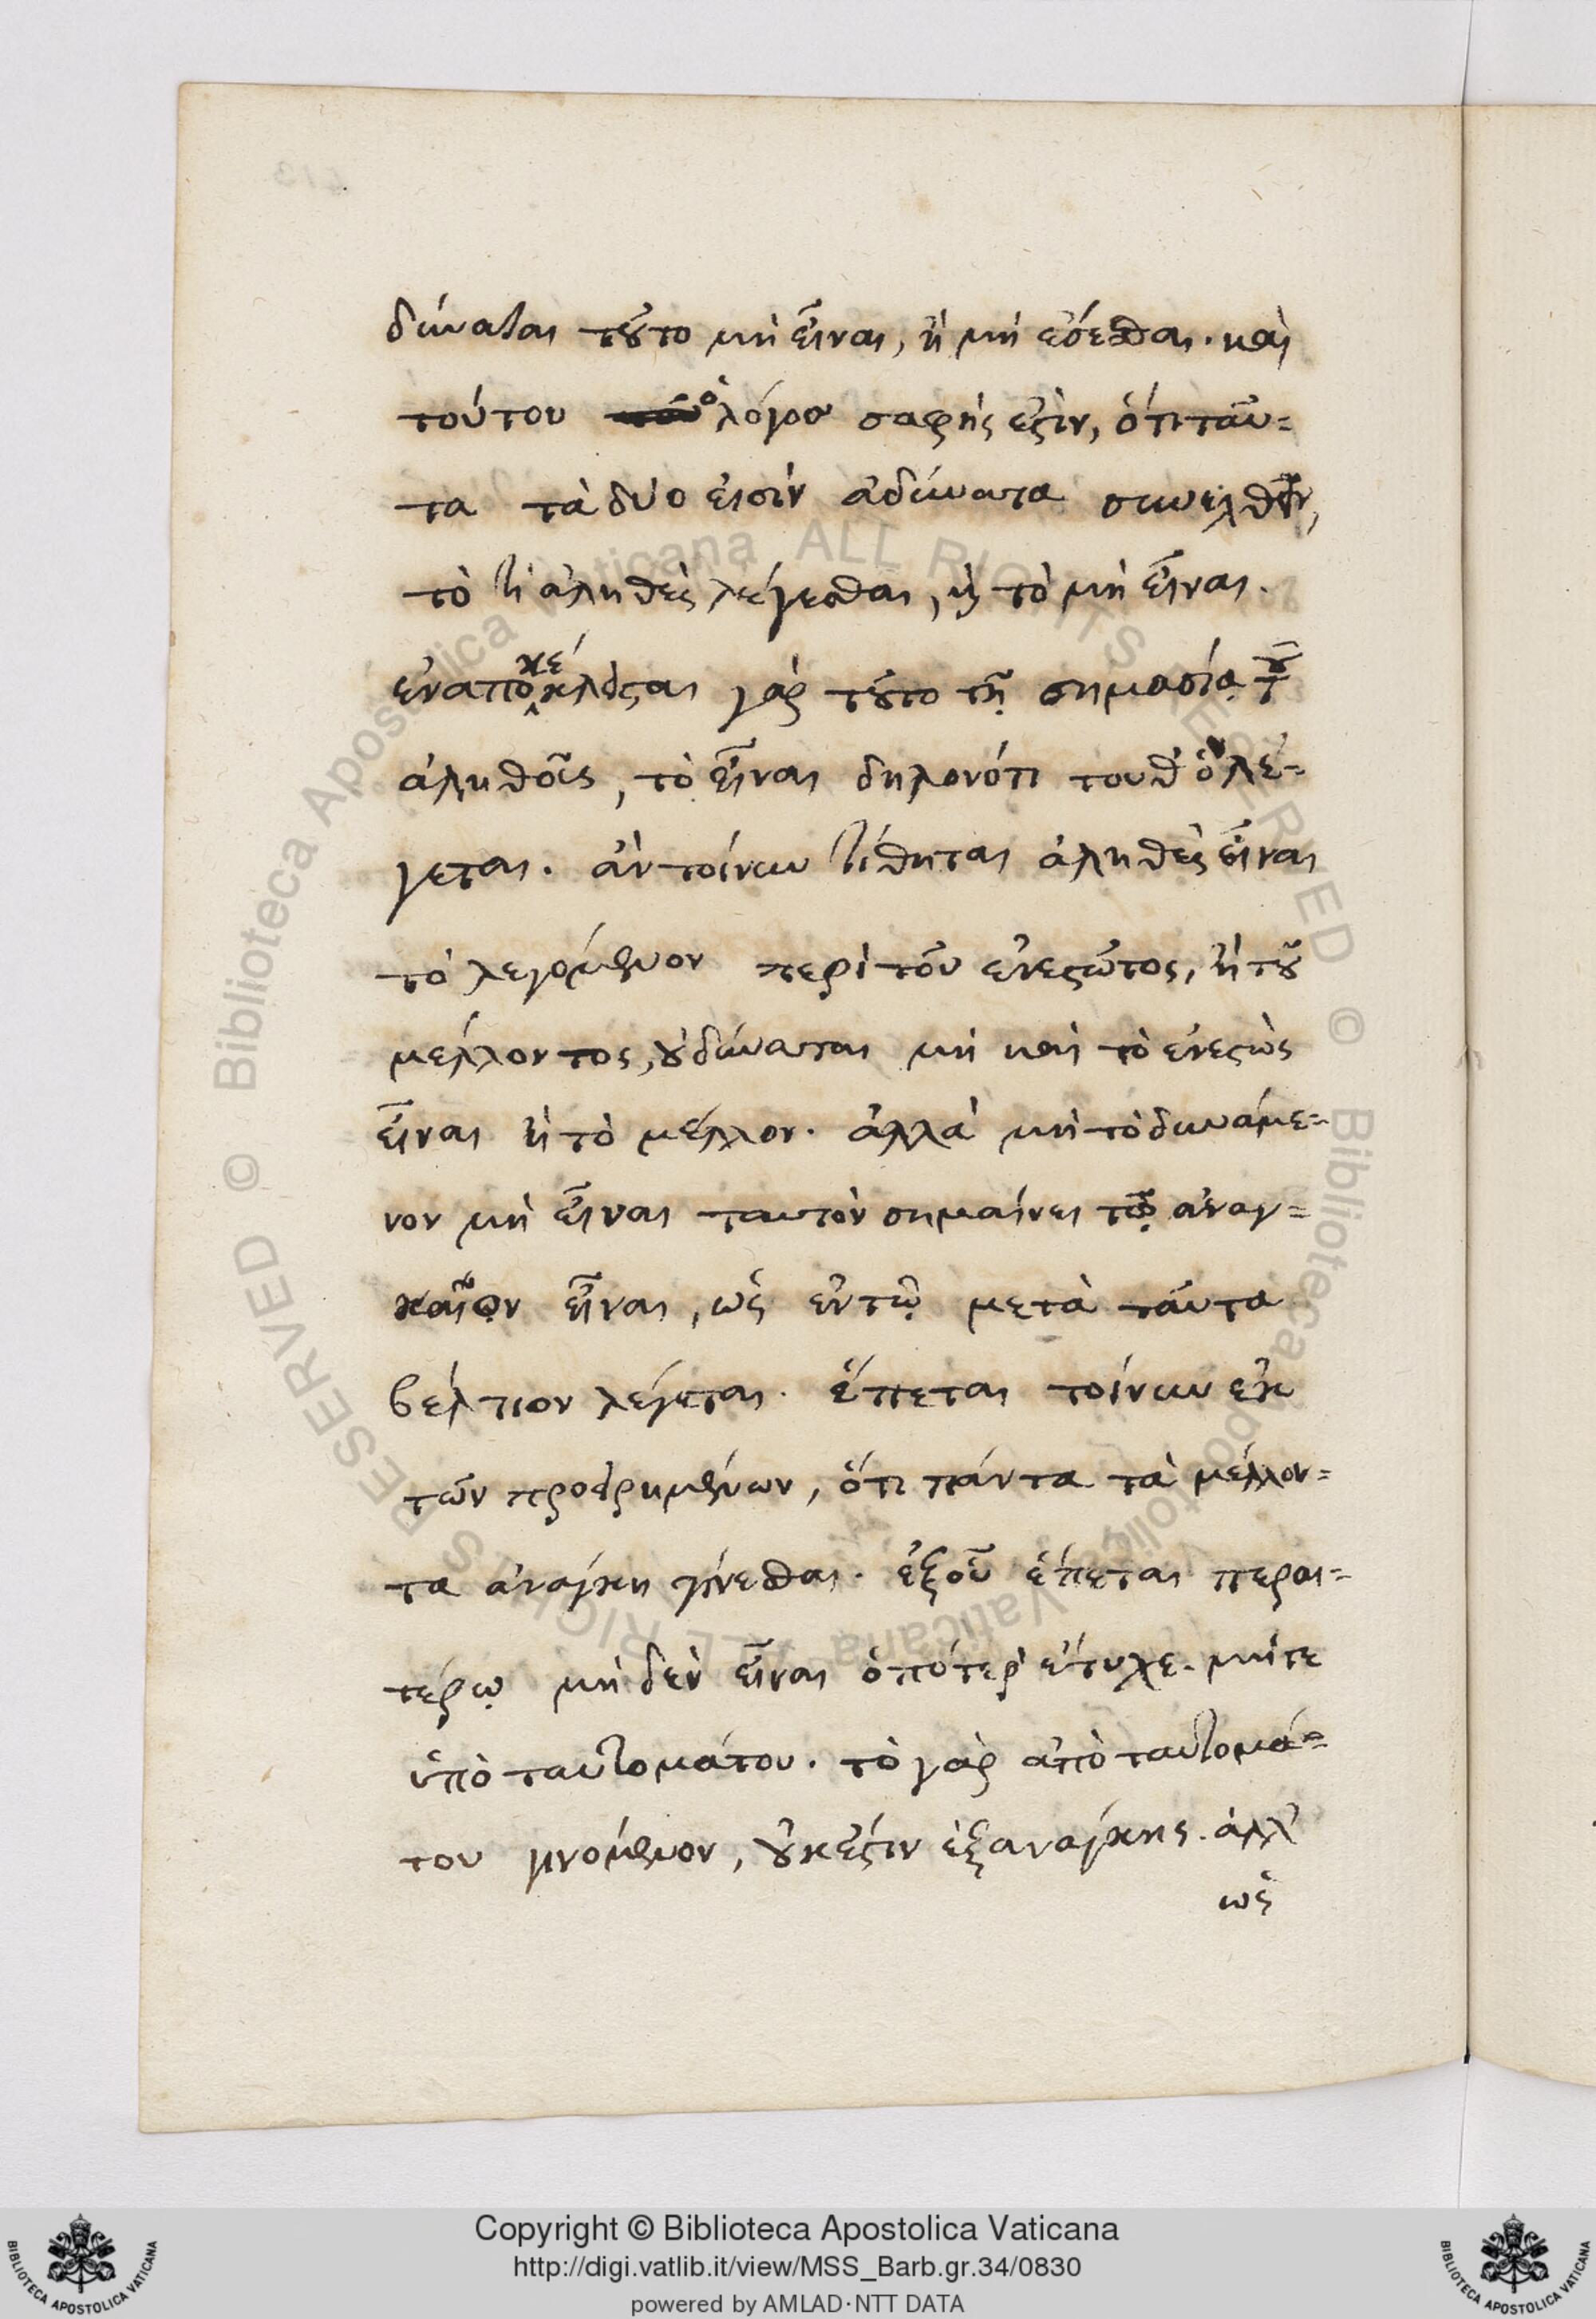 δύναται τοῦτο μὴ εἶναι, ἢ μὴ ἔσεσθαι. καὶ
τούτου ὁ λόγος σαφής ἐστὶν, ὅτι ταῦ=
τα τὰ δύο εἰσὶν ἀδύνατα συνελθεῖν,
τὸ τὶ ἀληθὲς λέγεσθαι, καὶ τὸ μὴ εἶναι.
ἐναποκέκλεισται γὰρ τοῦτο τῇ σημασίᾳ τοῦ
ἀληθοῦς, τὸ εἶναι δηλονότι τουθ' ὃ λέ=
γεται. ἂν τοίνυν τίθηται ἀληθὲς εἶναι
τὸ λεγόμενον περὶ τοῦ ἐνεστῶτος, ἢ τοῦ
μέλλοντος, οὐ δύναται μὴ καὶ τὸ ἐνεστὼς
εἶναι ἢ τὸ μέλλον. ἀλλὰ μὴ τὸ δυνάμε=
νον μὴ εἶναι ταυτὸν σημαίνει τῷ ἀναγ=
καῖον εἶναι, ὡς ἐν τῷ μετὰ ταῦτα
βέλτιον λέγεται. ἕπεται τοίνυν ἐκ
τῶν προειρημένων, ὅτι πάντα τὰ μέλλον=
τα ἀνάγκη γίνεσθαι. ἐξ οὗ ἕπεται περαι=
τέρω μηδὲν εἶναι ὁπότερ' ἔτυχε. μήτε
ὑπὸ ταυτομάτου. τὸ γὰρ ἀπὸ ταυτομά=
του γινόμενον, οὐκ ἔστιν ἐξ ἀνάγκης. ἀλλ'
ὡς
Copyright © Biblioteca Apostolica Vaticana
http://digi.vatlib.it/view/MSS_Barb.gr.34/0830
powered by AMLAD·NTT DATA